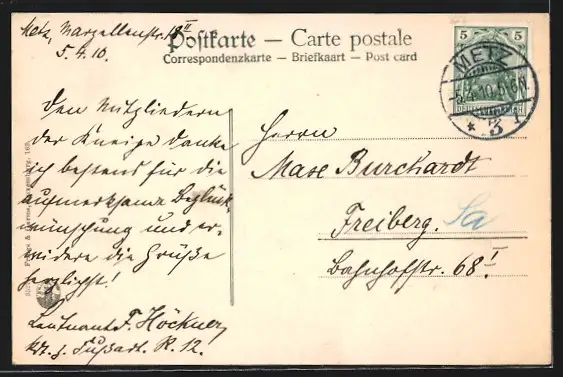 Metz, Marzellenstr. 18 II
5.4.10.
Postkarte — Carte postale
Correspondenzkarte — Briefkaart — Post card
5 5
METZ
5.4.10. 5-6N.
* 3 f
Den Mitgliedern
der Kneipe danke
ich bestens für die
aufmerksame Beglück-
wünschung und er-
widere die Grüße
herzlichst!
Leutnant F. Höckner,
Fußart. R. 12.
Herrn
Max Burchardt
Freiberg. Sa
Bahnhofstr. 68 I